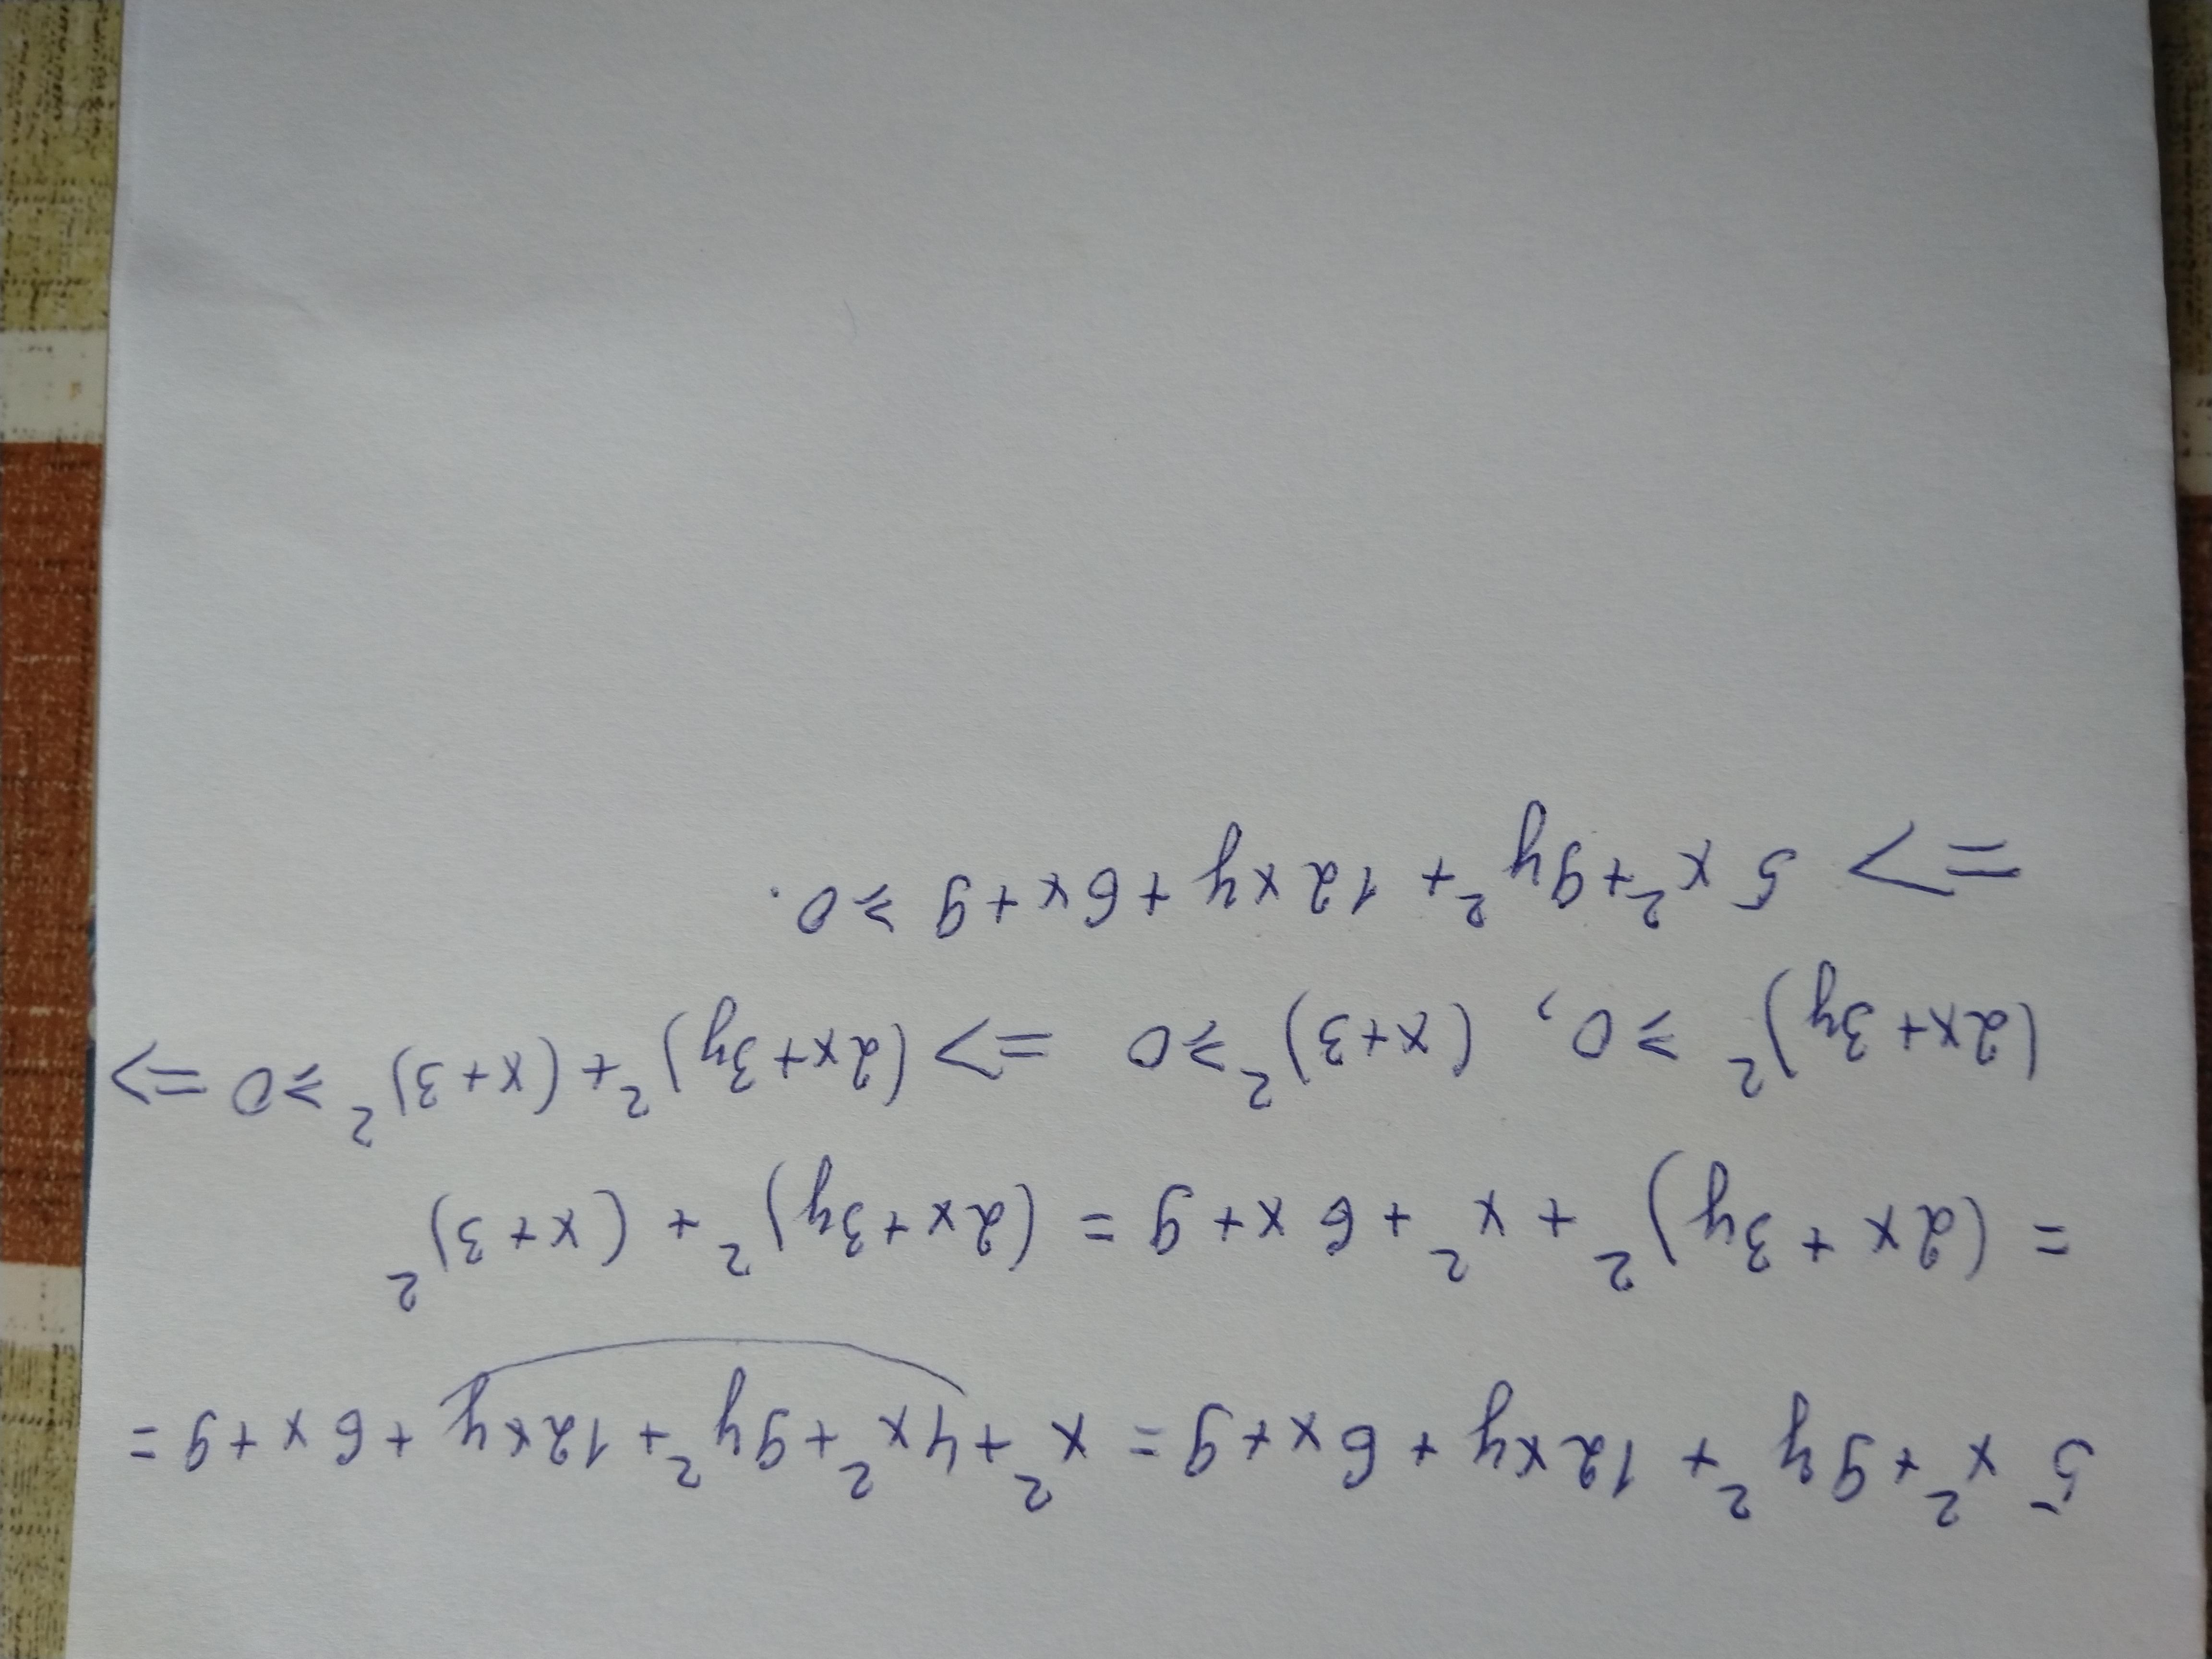 5x²+9y²+12xy+6x+9=x²+4x²+9y²+12xy+6x+9=
=(2x+3y)²+x²+6x+9=(2x+3y)²+(x+3)²
(2x+3y)²⩾0, (x+3)²⩾0 => (2x+3y)²+(x+3)²⩾0 =>
=> 5x²+9y²+12xy+6x+9⩾0.